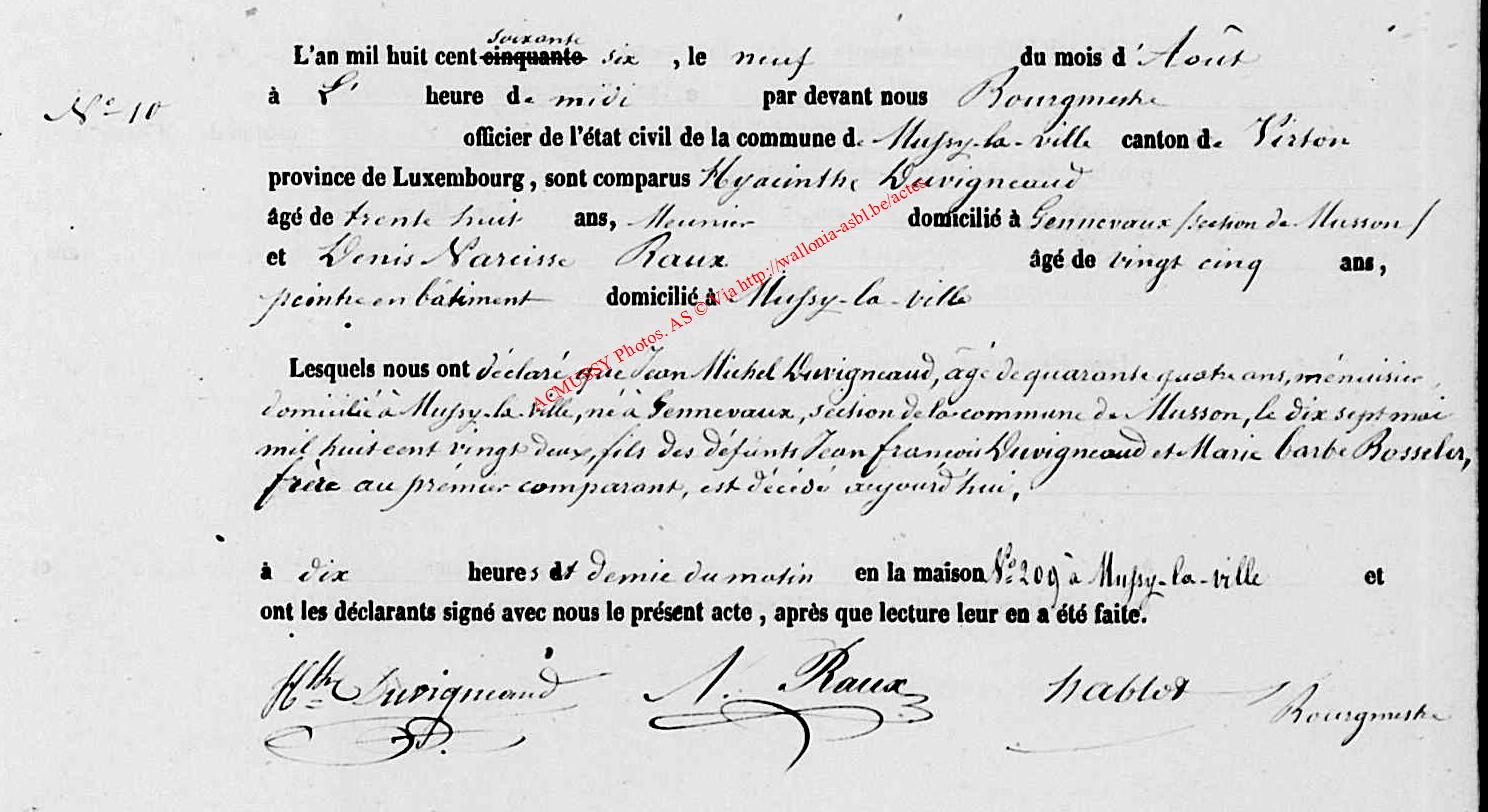 soixante
L'an mil huit cent cinquante six , le neuf du mois d' Août
N° 10
à L' heure de midi par devant nous Bourgmestre
officier de l'état civil de la commune de Mussy-la-ville canton de Virton
province de Luxembourg, sont comparus Hyacinthe Duvigneaud
âgé de trente huit ans, Meunier domicilié à Gennevaux (section de Musson)
et Denis Narcisse Raux âgé de vingt cinq ans,
peintre en bâtiment domicilié à Mussy-la-ville
ACMUSSY Photos. AS © Via http://wallonia-asbl.be/actes
Lesquels nous ont déclaré que Jean Michel Duvigneaud, âgé de quarante quatre ans, ménuisier,
domicilié à Mussy-la-ville, né à Gennevaux, section de la commune de Musson, le dix sept mai
mil huit cent vingt deux, fils des défunts Jean françois Duvigneaud et Marie barbe Rosseler,
frère au prémier comparant, est décédé aujourd'hui,
à dix heures et demie du matin en la maison N° 209 à Mussy-la-ville et
ont les déclarants signé avec nous le présent acte, après que lecture leur en a été faite.
Hthe Duvigneaud N. Raux hablot Bourgmestre